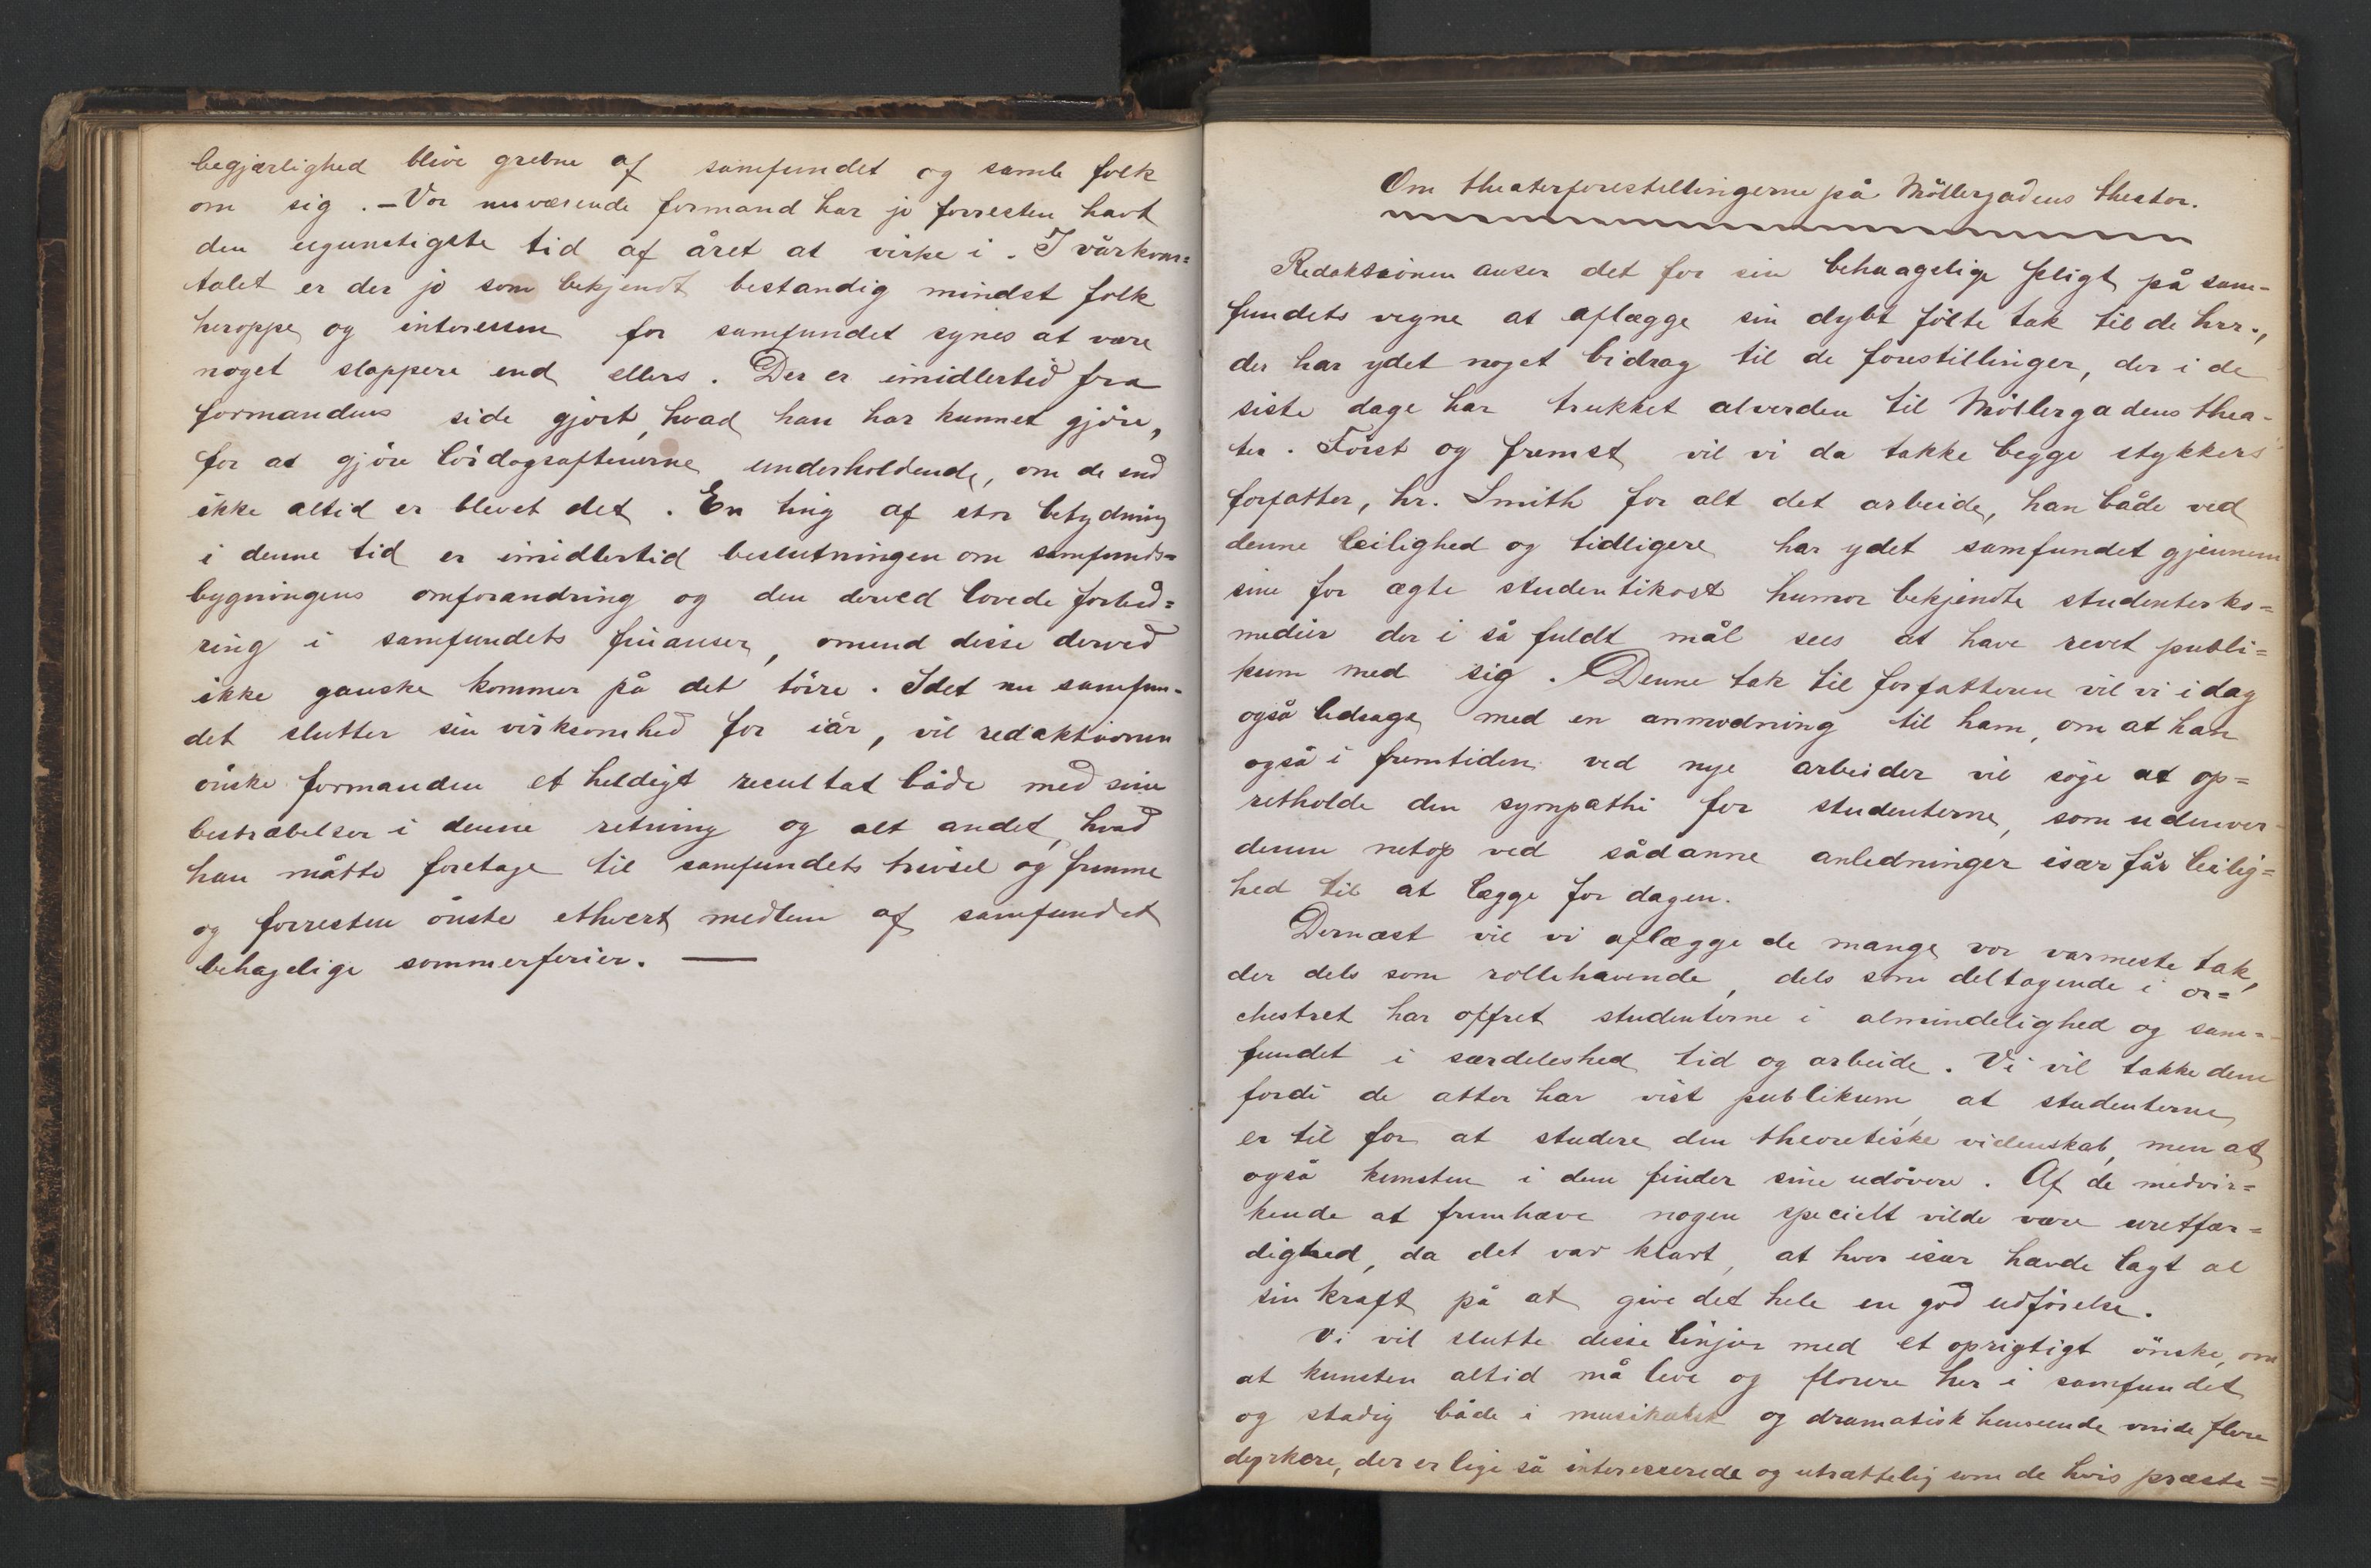 begjærlighed blive grebne af samfundet og samle folk
om sig. – Vor nuværende formand har jo forresten havt
den ugunstigste tid af året at virke i. I vårkvar=
talet er der jo som bekjendt bestandig mindst folk
heroppe og interessen for samfundet synes at være
noget slappere end ellers. Der er imidlertid fra
formandens side gjort, hvad han har kunnet gjöre,
for at gjöre lördagsaftenerne underholdende, om de end
ikke altid er blevet det. En ting af stor betydning
i denne tid er imidlertid beslutningen om samfunds=
bygningens omforandring og den derved lovede forbed=
ring i samfundets finanser, omend disse derved
ikke ganske kommer på det törre. Idet nu samfun-
det slutter sin virksomhed for iår, vil redaktionen
önske formanden et heldigt resultat både med sine
bestræbelser i denne retning og alt andet, hvad
han måtte foretage til samfundets trivsel og fremme
og forresten önske ethvert medlem af samfundet
behagelige sommerferier. —
Om theaterforestillingerne på Möllergadens theater.
Redaktionen anser det for sin behaagelige pligt på sam-
fundets vegne at aflægge sin dybt fölte tak til de hrr.,
der har ydet noget bidrag til de forestillinger, der i de
siste dage har trukket alverden til Möllergadens thea-
ter. Först og fremst vil vi da takke begge stykkers
forfatter, hr. Smith for alt det arbeide, han både ved
denne leilighed og tidligere har ydet samfundet gjennem
sine for ægte studentikost humor bekjendte studenterko=
medier der i så fuldt mål sees at have revet publi=
kum med sig. Denne tak til forfatteren vil vi idag
også ledsage med en anmodning til ham, om at han
også i fremtiden ved nye arbeider vil söge at op=
retholde den sympathi for studenterne, som udenver-
denen netop ved sådanne anledninger især får leilig=
hed til at lægge for dagen.
Dernæst vil vi aflægge de mange vor varmeste tak,
der dels som rollehavende, dels som deltagende i or=
chestret har offret studenterne i almindelighed og sam=
fundet i særdeleshed tid og arbeide. Vi vil takke dem
fordi de atter har vist publikum, at studenterne
er til for at studere den theoretiske videnskab, men at
også kunsten i dem finder sine udövere. Af de medvir=
kende at fremhæve nogen specielt vilde være uretfær=
dighed, da det var klart, at hver især havde lagt al
sin kraft på at give det hele en god udförelse.
Vi vil slutte disse linjer med et oprigtigt önske, om
at kunsten altid må leve og florere her i samfundet
og stadig både i musikalsk og dramatisk henseende vinde flere
dyrkere, der er lige så interesserede og utrættelig som de hvis præsta=